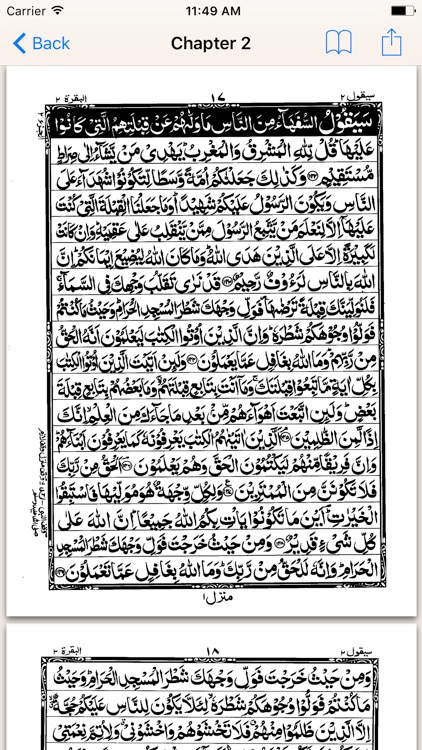 Carrier 11:49 AM
Back Chapter 2
سیقول ٢ ١٧ البقرة ٢
سَيَقُوْلُ السُّفَهَآءُ مِنَ النَّاسِ مَا وَلّٰىهُمْ عَنْ قِبْلَتِهِمُ الَّتِيْ كَانُوْا
عَلَيْهَا قُلْ لِّلّٰهِ الْمَشْرِقُ وَالْمَغْرِبُ يَهْدِيْ مَنْ يَّشَآءُ اِلٰى صِرَاطٍ
مُّسْتَقِيْمٍ ١٤٢ وَكَذٰلِكَ جَعَلْنٰكُمْ اُمَّةً وَّسَطًا لِّتَكُوْنُوْا شُهَدَآءَ عَلَى
النَّاسِ وَيَكُوْنَ الرَّسُوْلُ عَلَيْكُمْ شَهِيْدًا وَمَا جَعَلْنَا الْقِبْلَةَ الَّتِيْ كُنْتَ
عَلَيْهَآ اِلَّا لِنَعْلَمَ مَنْ يَّتَّبِعُ الرَّسُوْلَ مِمَّنْ يَّنْقَلِبُ عَلٰى عَقِبَيْهِ وَاِنْ كَانَتْ
لَكَبِيْرَةً اِلَّا عَلَى الَّذِيْنَ هَدَى اللّٰهُ وَمَا كَانَ اللّٰهُ لِيُضِيْعَ اِيْمَانَكُمْ اِنَّ
اللّٰهَ بِالنَّاسِ لَرَءُوْفٌ رَّحِيْمٌ ١٤٣ قَدْ نَرٰى تَقَلُّبَ وَجْهِكَ فِي السَّمَآءِ
فَلَنُوَلِّيَنَّكَ قِبْلَةً تَرْضٰىهَا فَوَلِّ وَجْهَكَ شَطْرَ الْمَسْجِدِ الْحَرَامِ وَحَيْثُ مَا كُنْتُمْ
فَوَلُّوْا وُجُوْهَكُمْ شَطْرَهٗ وَاِنَّ الَّذِيْنَ اُوْتُوا الْكِتٰبَ لَيَعْلَمُوْنَ اَنَّهُ الْحَقُّ
مِنْ رَّبِّهِمْ وَمَا اللّٰهُ بِغَافِلٍ عَمَّا يَعْمَلُوْنَ ١٤٤ وَلَئِنْ اَتَيْتَ الَّذِيْنَ اُوْتُوا الْكِتٰبَ
بِكُلِّ اٰيَةٍ مَّا تَبِعُوْا قِبْلَتَكَ وَمَآ اَنْتَ بِتَابِعٍ قِبْلَتَهُمْ وَمَا بَعْضُهُمْ بِتَابِعٍ قِبْلَةَ
بَعْضٍ وَلَئِنِ اتَّبَعْتَ اَهْوَآءَهُمْ مِّنْ بَعْدِ مَا جَآءَكَ مِنَ الْعِلْمِ اِنَّكَ
اِذًا لَّمِنَ الظّٰلِمِيْنَ ١٤٥ اَلَّذِيْنَ اٰتَيْنٰهُمُ الْكِتٰبَ يَعْرِفُوْنَهٗ كَمَا يَعْرِفُوْنَ اَبْنَآءَهُمْ
وَاِنَّ فَرِيْقًا مِّنْهُمْ لَيَكْتُمُوْنَ الْحَقَّ وَهُمْ يَعْلَمُوْنَ ١٤٦ اَلْحَقُّ مِنْ رَّبِّكَ
فَلَا تَكُوْنَنَّ مِنَ الْمُمْتَرِيْنَ ١٤٧ وَلِكُلٍّ وِّجْهَةٌ هُوَ مُوَلِّيْهَا فَاسْتَبِقُوا
الْخَيْرٰتِ اَيْنَ مَا تَكُوْنُوْا يَاْتِ بِكُمُ اللّٰهُ جَمِيْعًا اِنَّ اللّٰهَ عَلٰى
كُلِّ شَيْءٍ قَدِيْرٌ ١٤٨ وَمِنْ حَيْثُ خَرَجْتَ فَوَلِّ وَجْهَكَ شَطْرَ الْمَسْجِدِ
الْحَرَامِ وَاِنَّهٗ لَلْحَقُّ مِنْ رَّبِّكَ وَمَا اللّٰهُ بِغَافِلٍ عَمَّا تَعْمَلُوْنَ ١٤٩
منزل ١
سیقول ٢ ١٨ البقرة ٢
وَمِنْ حَيْثُ خَرَجْتَ فَوَلِّ وَجْهَكَ شَطْرَ الْمَسْجِدِ الْحَرَامِ وَحَيْثُ
مَا كُنْتُمْ فَوَلُّوْا وُجُوْهَكُمْ شَطْرَهٗ لِئَلَّا يَكُوْنَ لِلنَّاسِ عَلَيْكُمْ حُجَّةٌ
اِلَّا الَّذِيْنَ ظَلَمُوْا مِنْهُمْ فَلَا تَخْشَوْهُمْ وَاخْشَوْنِيْ وَلِاُتِمَّ نِعْمَتِيْ